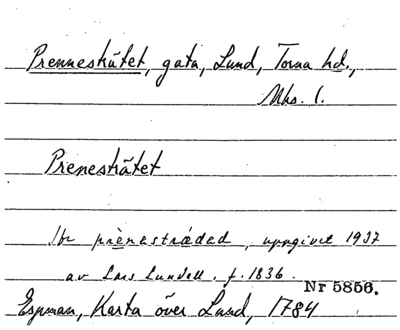 Prennesträtet, gata, Lund, Torna hd.,
Mhs. l.
Prenestrãtet
prènastrǽded, uppgivet 1937
av Lars Lundell. f. 1836.
Nr 5856.
Espman, Karta över Lund, 1784